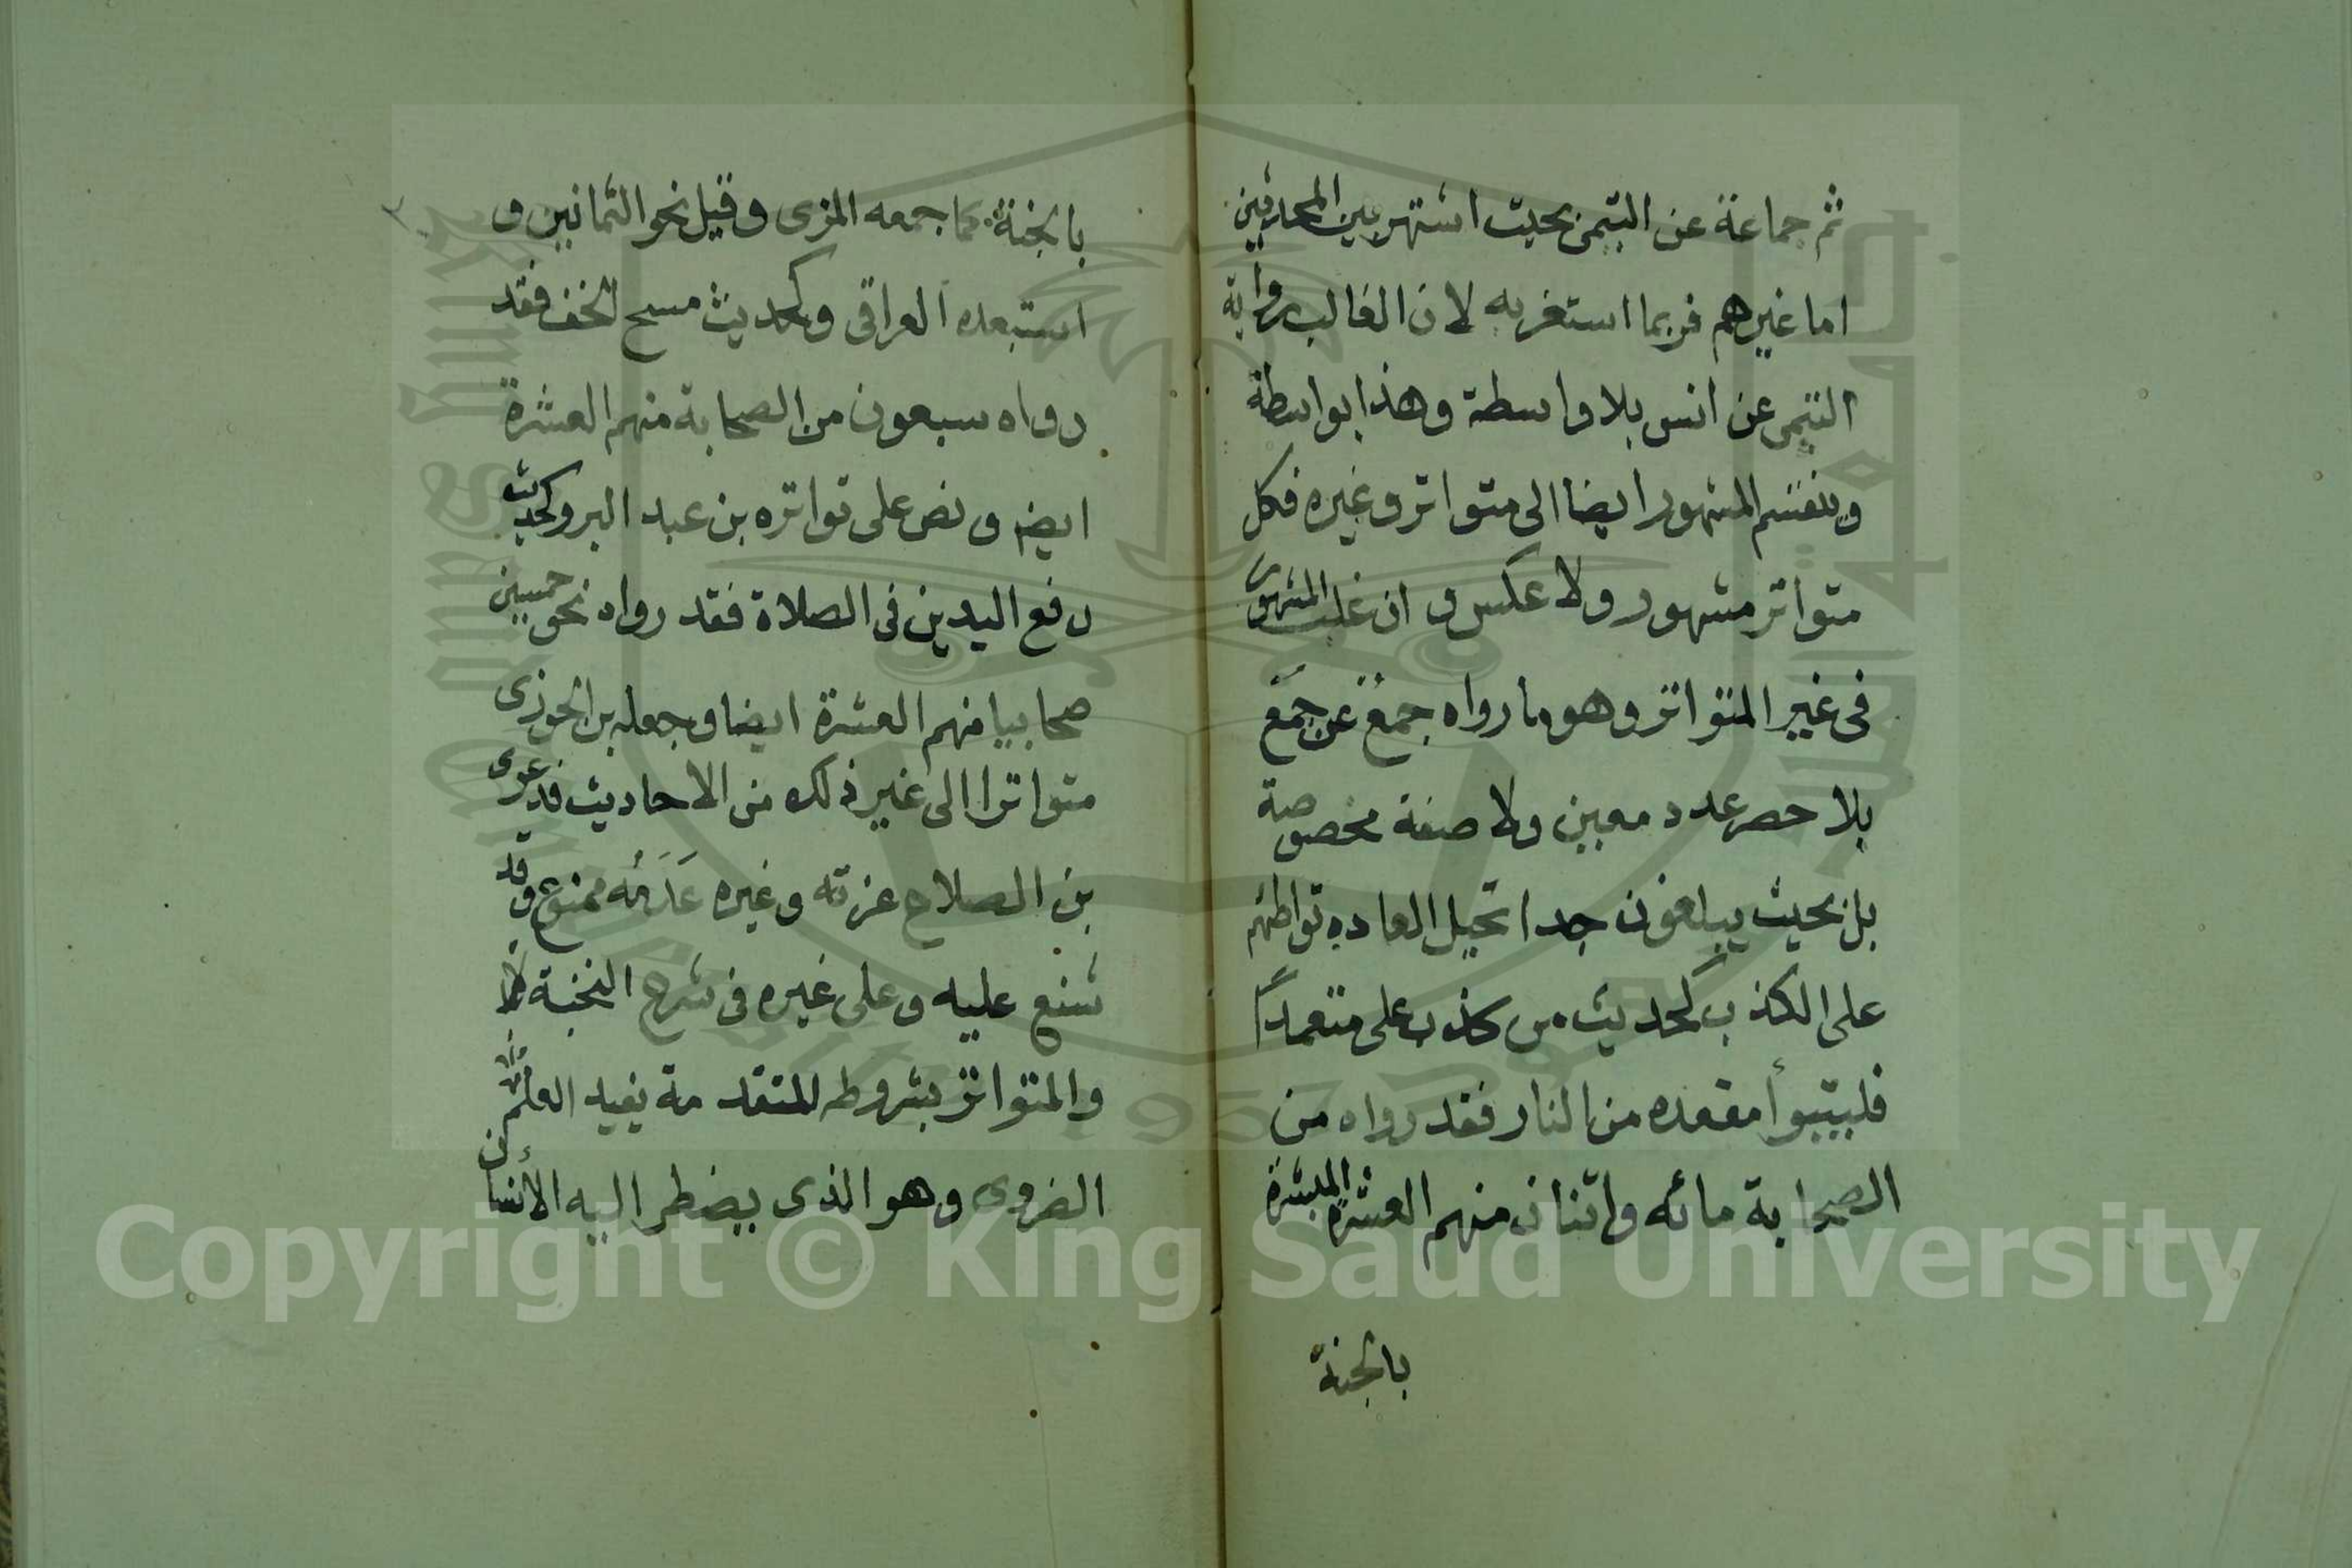 ثم جماعة عن التيمي بحيث اشتهر بين المحدثين
اما غيرهم فربما استغربه لان الغالب رواية
التيمي عن انس بلا واسطة وهذا بواسطة
وينقسم المشهور ايضا الى متواتر وغيره فكل
متواتر مشهور ولا عكس وان غلب المشهور
فى غير المتواتر وهو ما رواه جمعٌ عن جمَع
بلا حصر عدد معين ولا صفة مخصوصة
بل بحيث يبلغون حدا تحيل العاده تواطئهم
على الكذب كحديث من كذب على متعمدًا
فليتبوأ مقعده من النار فقد رواه من
الصحابة مائه واثنان منهم العشرة المبشرة
بالجنة
بالجنة كما جمعه المزى وقيل نحو الثمانين و
استبعده العراقى وكحديث مسح الخف فقد
رواه سبعون من الصحابة منهم العشرة
ايضا ونص على تواتره بن عبد البر وكحديث
رفع اليدين فى الصلاة فقد رواه نحو خمسين
صحابيا منهم العشرة ايضا وجعله بن الجوزى
متواترا الى غير ذلك من الاحاديث فدعوى
بن الصلاح عزته وغيره عَدَمَه ممنوع وقد
شنع عليه وعلى غيره فى شرح النخبة
والمتواتر بشروطه المتقدمة يفيد العلم
الضرورى وهو الذى يضطر اليه الأنسان
Copyright © King Saud University
1957